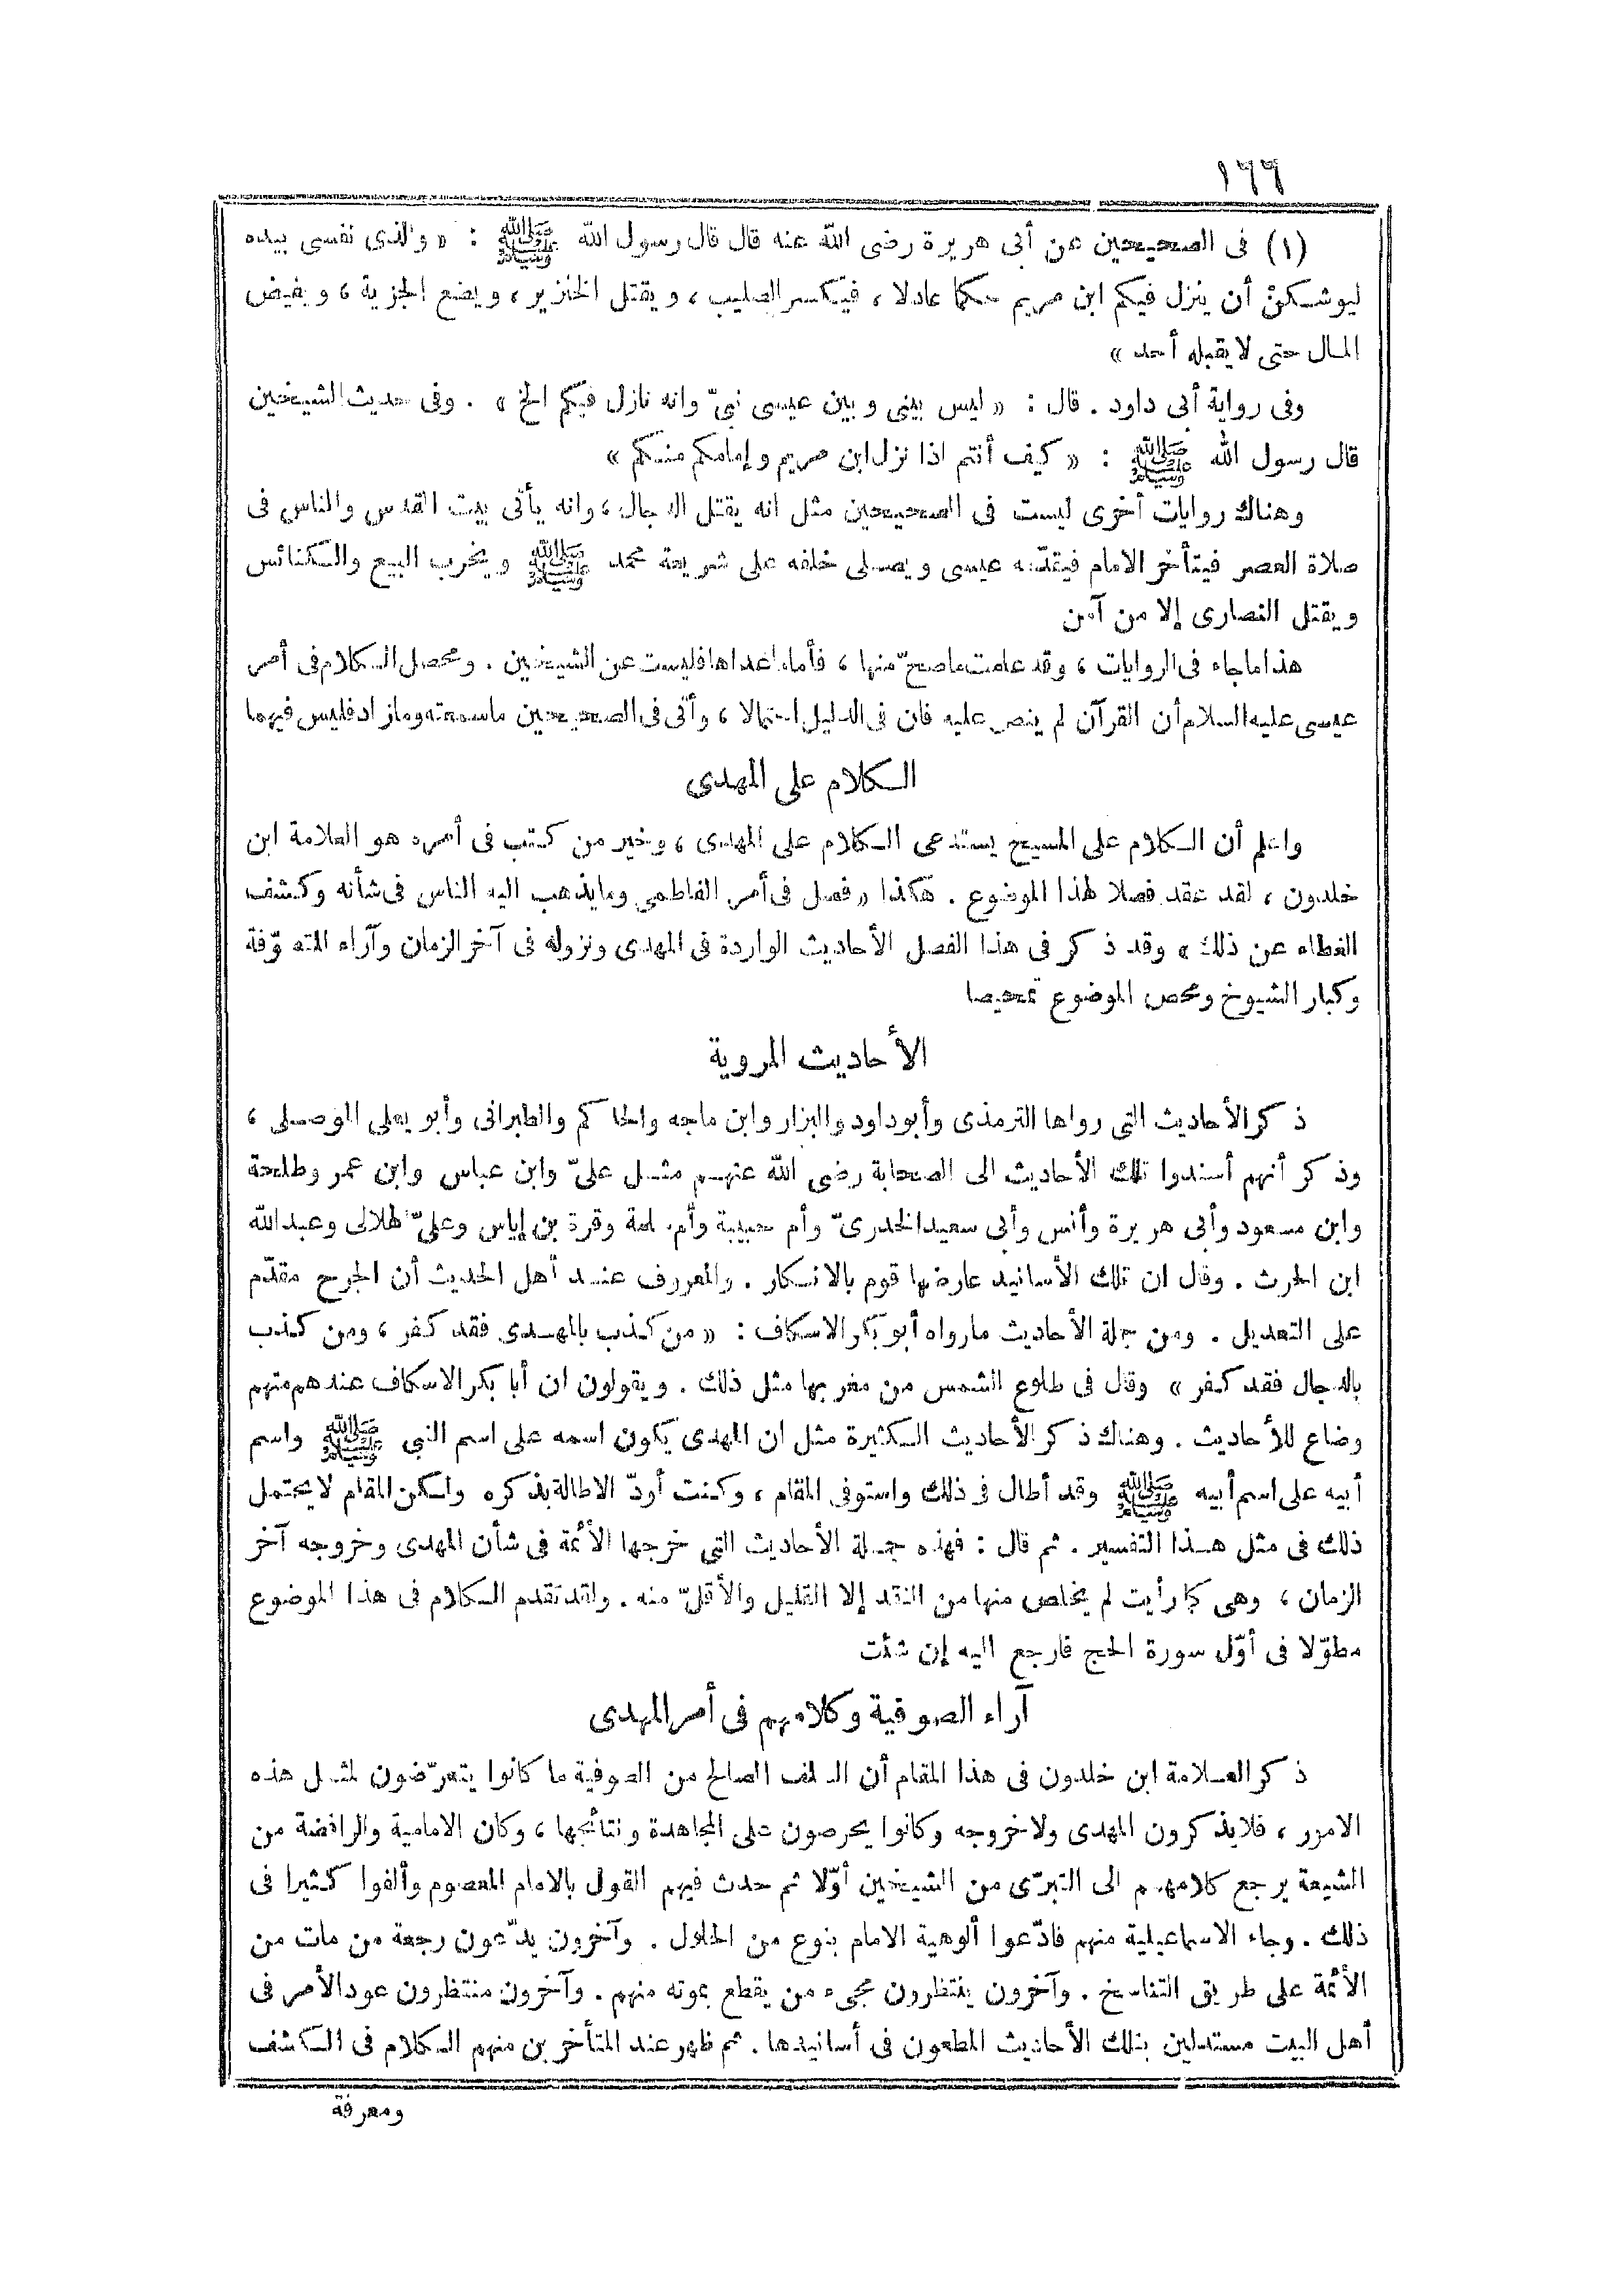 ١٦٦
(١) فى الصحيحين عن أبى هريرة رضى الله عنه قال قال رسول الله ﷺ : « والذى نفسى بيده
ليوشكنّ أن ينزل فيكم ابن مريم حكما عادلا ، فيكسر الصليب ، ويقتل الخنزير ، ويضع الجزية ، ويفيض
المال حتى لا يقبله أحد »
وفى رواية أبى داود . قال : « ليس بينى وبين عيسى نبىّ وانه نازل فيكم الخ » . وفى حديث الشيخين
قال رسول الله ﷺ : « كيف أنتم اذا نزل ابن مريم وإمامكم منكم »
وهناك روايات أخرى ليست فى الصحيحين مثل انه يقتل الدجال ، وانه يأتى بيت القدس والناس فى
صلاة العصر فيتأخر الامام فيقدّمه عيسى ويصلى خلفه على شريعة محمد ﷺ ويخرب البيع والكنائس
ويقتل النصارى إلا من آمن
هذا ماجاء فى الروايات ، وقد علمت ماصحّ منها ، فأما ماعداها فليست عن الشيخين . ومحصل الكلام فى أمر
عيسى عليه السلام أن القرآن لم ينص عليه فان فى الدليل احتمالا ، وأتى فى الصحيحين ماسمعته ومازاد فليس فيهما
الكلام على المهدى
واعلم أن الكلام على المسيح يستدعى الكلام على المهدى ، وخير من كتب فى أمره هو العلامة ابن
خلدون ، لقد عقد فصلا لهذا الموضوع . هكذا « فصل فى أمر الفاطمى ومايذهب اليه الناس فى شأنه وكشف
الغطاء عن ذلك » وقد ذكر فى هذا الفصل الأحاديث الواردة فى المهدى ونزوله فى آخر الزمان وآراء المتصوّفة
وكبار الشيوخ ومحص الموضوع تمحيصا
الأحاديث المروية
ذكر الأحاديث التى رواها الترمذى وأبوداود والبزار وابن ماجه والحاكم والطبرانى وأبو يعلى الموصلى ،
وذكر أنهم أسندوا تلك الأحاديث الى الصحابة رضى الله عنهم مثل علىّ وابن عباس وابن عمر وطلحة
وابن مسعود وأبى هريرة وأنس وأبى سعيد الخدرىّ وأم حبيبة وأم سلمة وقرة بن إياس وعلىّ الهلالى وعبد الله
ابن الحرث . وقال ان تلك الأسانيد عارضها قوم بالانكار . والمعروف عند أهل الحديث أن الجرح مقدّم
على التعديل . ومن جملة الأحاديث مارواه أبو بكر الاسكاف : « من كذب بالمهدى فقد كفر ، ومن كذب
بالدجال فقد كفر » وقال فى طلوع الشمس من مغربها مثل ذلك . ويقولون ان أبا بكر الاسكاف عندهم متهم
وضاع للأحاديث . وهناك ذكر الأحاديث الكثيرة مثل ان المهدى يكون اسمه على اسم النبي ﷺ واسم
أبيه على اسم أبيه ﷺ وقد أطال فى ذلك واستوفى المقام ، وكنت أودّ الاطالة بذكره ولكن المقام لا يحتمل
ذلك فى مثل هذا التفسير . ثم قال : فهذه جملة الأحاديث التى خرجها الأئمة فى شأن المهدى وخروجه آخر
الزمان ، وهى كما رأيت لم يخلص منها من النقد إلا القليل والأقلّ منه . ولقد تقدم الكلام فى هذا الموضوع
مطوّلا فى أوّل سورة الحج فارجع اليه إن شئت
آراء الصوفية وكلامهم فى أمر المهدى
ذكر العلامة ابن خلدون فى هذا المقام أن السلف الصالح من الصوفية ما كانوا يتعرّضون لمثل هذه
الامور ، فلايذكرون المهدى ولاخروجه وكانوا يحرصون على المجاهدة ونتائجها ، وكان الامامية والرافضة من
الشيعة يرجع كلامهم الى التبرّى من الشيخين أوّلا ثم حدث فيهم القول بالامام المعصوم وألفوا كثيرا فى
ذلك . وجاء الاسماعيلية منهم فادّعوا ألوهية الامام بنوع من الحلول . وآخرون يدّعون رجعة من مات من
الأئمة على طريق التناسخ . وآخرون ينتظرون مجىء من يقطع بموته منهم . وآخرون منتظرون عود الأمر فى
أهل البيت مستدلين بتلك الأحاديث المطعون فى أسانيدها . ثم ظهر عند المتأخرين منهم الكلام فى الكشف
ومعرفة